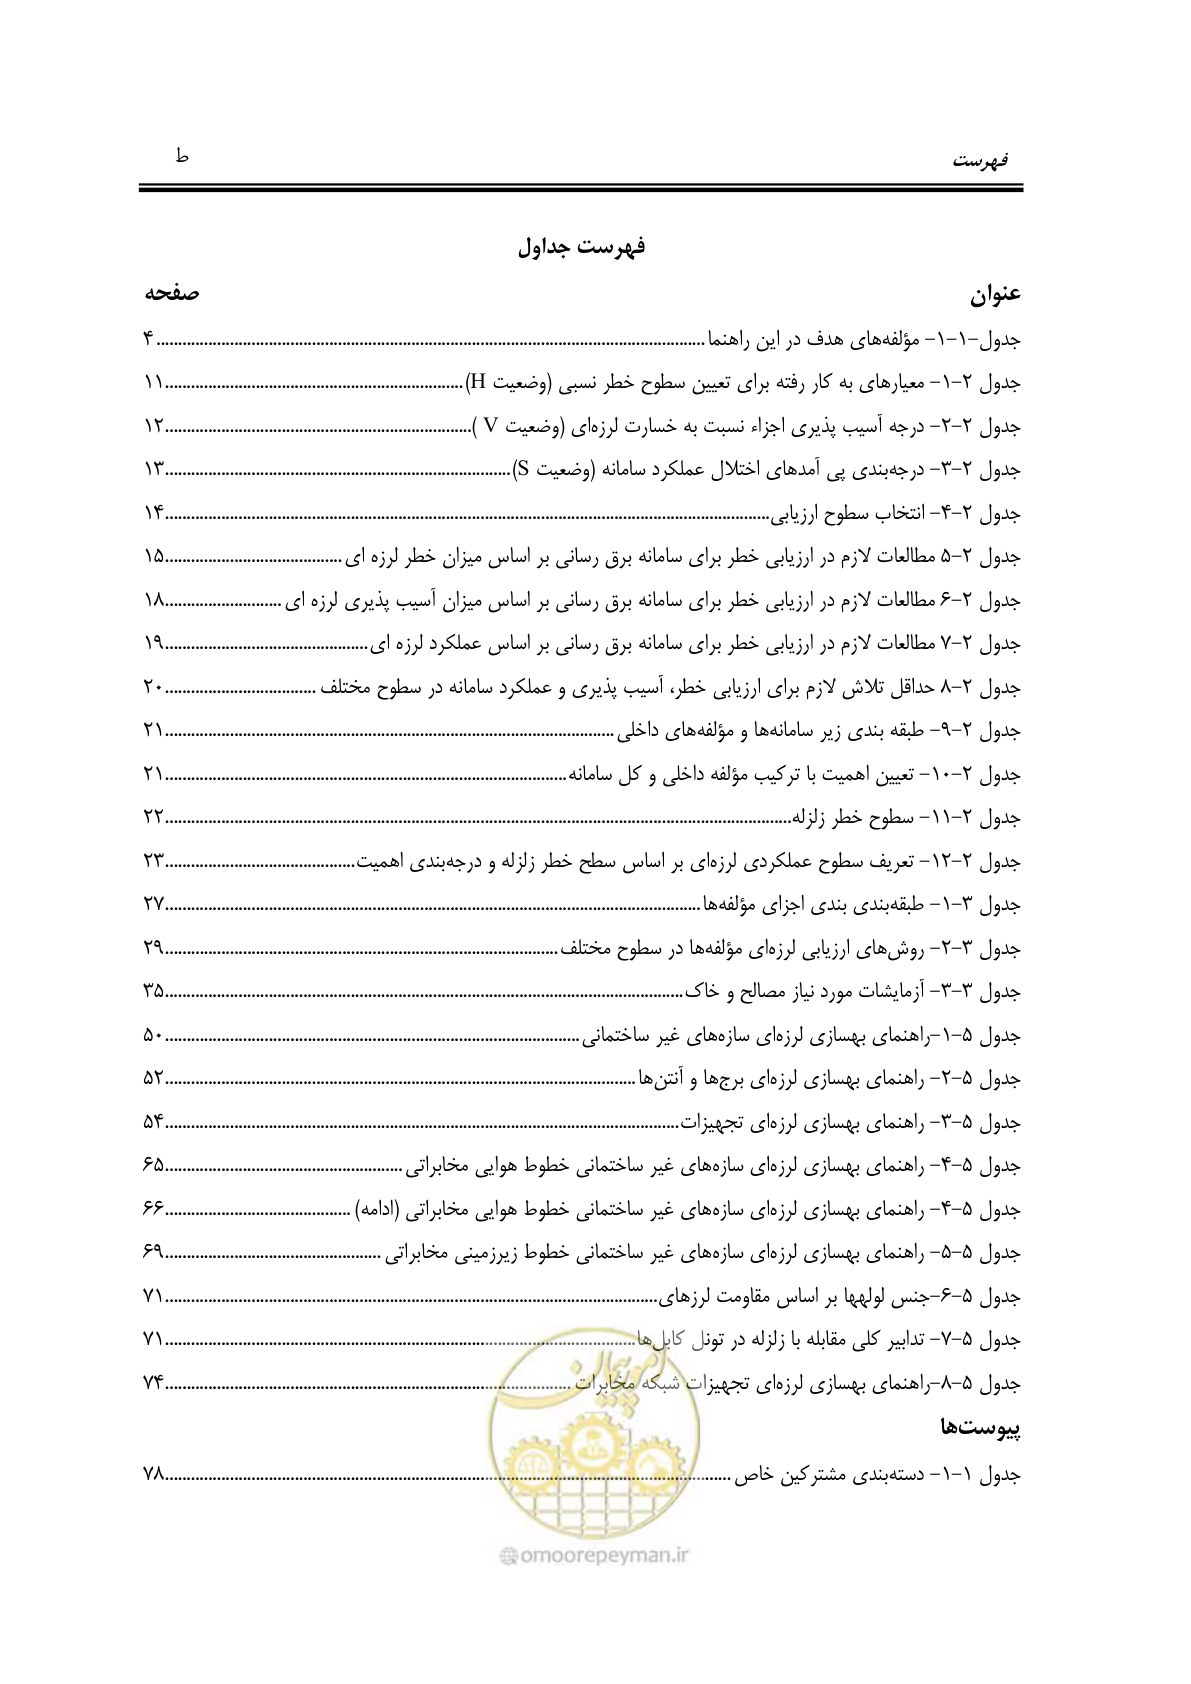 فهرست ط
فهرست جداول
عنوان صفحه
جدول-۱-۱- مؤلفه‌های هدف در این راهنما ........ ۴
جدول ۲-۱- معیارهای به کار رفته برای تعیین سطوح خطر نسبی (وضعیت H) ........ ۱۱
جدول ۲-۲- درجه آسیب پذیری اجزاء نسبت به خسارت لرزه‌ای (وضعیت V ) ........ ۱۲
جدول ۲-۳- درجه‌بندی پی آمدهای اختلال عملکرد سامانه (وضعیت S) ........ ۱۳
جدول ۲-۴- انتخاب سطوح ارزیابی ........ ۱۴
جدول ۲-۵ مطالعات لازم در ارزیابی خطر برای سامانه برق رسانی بر اساس میزان خطر لرزه ای ........ ۱۵
جدول ۲-۶ مطالعات لازم در ارزیابی خطر برای سامانه برق رسانی بر اساس میزان آسیب پذیری لرزه ای ........ ۱۸
جدول ۲-۷ مطالعات لازم در ارزیابی خطر برای سامانه برق رسانی بر اساس عملکرد لرزه ای ........ ۱۹
جدول ۲-۸ حداقل تلاش لازم برای ارزیابی خطر، آسیب پذیری و عملکرد سامانه در سطوح مختلف ........ ۲۰
جدول ۲-۹- طبقه بندی زیر سامانه‌ها و مؤلفه‌های داخلی ........ ۲۱
جدول ۲-۱۰- تعیین اهمیت با ترکیب مؤلفه داخلی و کل سامانه ........ ۲۱
جدول ۲-۱۱- سطوح خطر زلزله ........ ۲۲
جدول ۲-۱۲- تعریف سطوح عملکردی لرزه‌ای بر اساس سطح خطر زلزله و درجه‌بندی اهمیت ........ ۲۳
جدول ۳-۱- طبقه‌بندی بندی اجزای مؤلفه‌ها ........ ۲۷
جدول ۳-۲- روش‌های ارزیابی لرزه‌ای مؤلفه‌ها در سطوح مختلف ........ ۲۹
جدول ۳-۳- آزمایشات مورد نیاز مصالح و خاک ........ ۳۵
جدول ۵-۱-راهنمای بهسازی لرزه‌ای سازه‌های غیر ساختمانی ........ ۵۰
جدول ۵-۲- راهنمای بهسازی لرزه‌ای برج‌ها و آنتن‌ها ........ ۵۲
جدول ۵-۳- راهنمای بهسازی لرزه‌ای تجهیزات ........ ۵۴
جدول ۵-۴- راهنمای بهسازی لرزه‌ای سازه‌های غیر ساختمانی خطوط هوایی مخابراتی ........ ۶۵
جدول ۵-۴- راهنمای بهسازی لرزه‌ای سازه‌های غیر ساختمانی خطوط هوایی مخابراتی (ادامه) ........ ۶۶
جدول ۵-۵- راهنمای بهسازی لرزه‌ای سازه‌های غیر ساختمانی خطوط زیرزمینی مخابراتی ........ ۶۹
جدول ۵-۶-جنس لولهها بر اساس مقاومت لرزهای ........ ۷۱
جدول ۵-۷- تدابیر کلی مقابله با زلزله در تونل کابل‌ها ........ ۷۱
جدول ۵-۸-راهنمای بهسازی لرزه‌ای تجهیزات شبکه مخابرات ........ ۷۴
پیوست‌ها
جدول ۱-۱- دسته‌بندی مشترکین خاص ........ ۷۸
امور پیمان
@omoorepeyman.ir